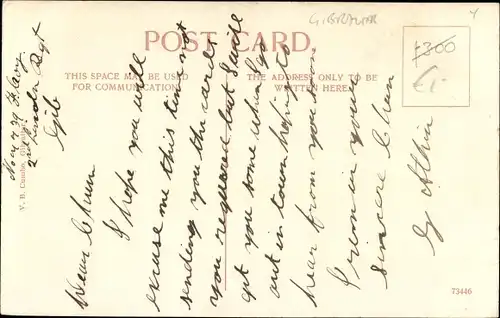 GIBRALTAR
4
POST CARD.
THIS SPACE MAY BE USED
FOR COMMUNICATION.
THE ADDRESS ONLY TO BE
WRITTEN HERE.
1300
£1-
V. B. Cumbo, Gib
Regt
Gib
Dear Chum
I hope you will
excuse me this time not
sending you the cards
you required but I will
get you some when I go
out in town hoping to
hear from you soon
I remain yours
sincere Chum
G
73446